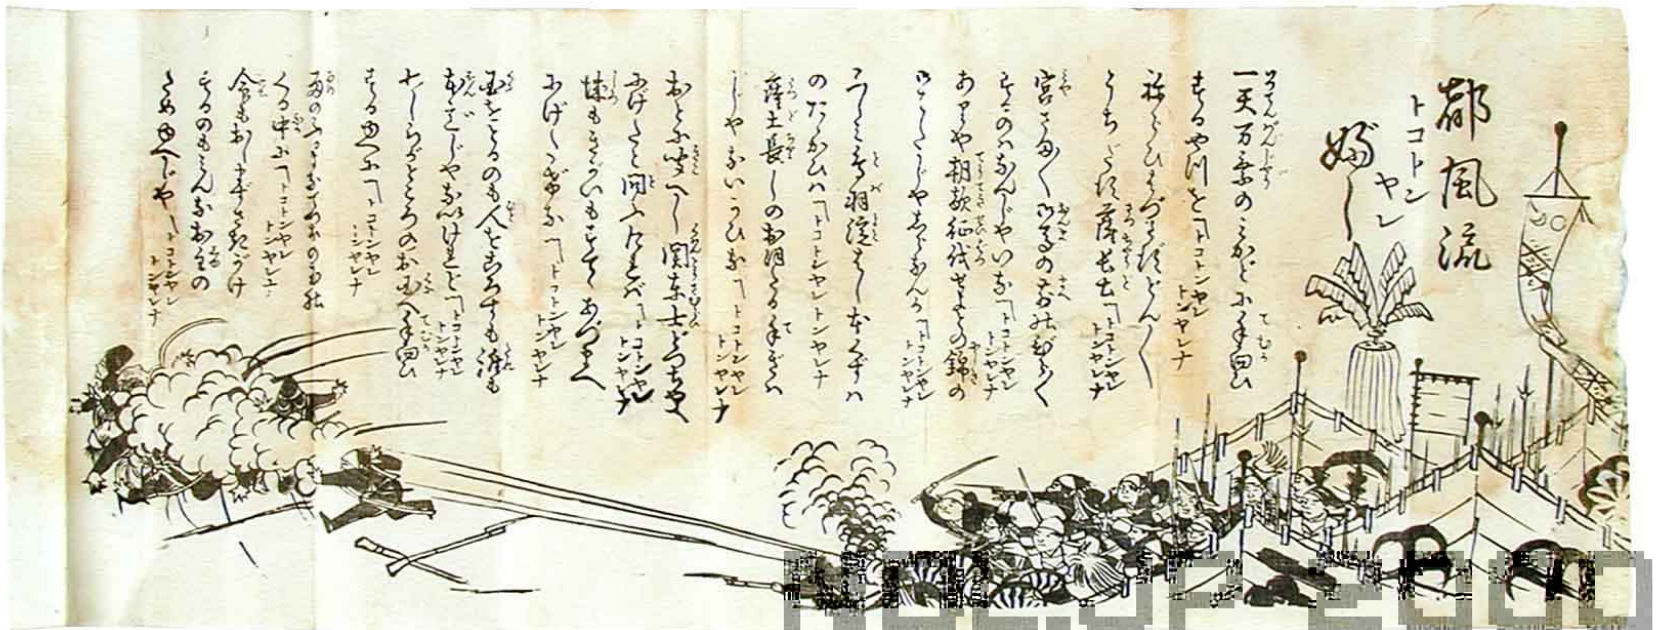 都風流
トコトン
ヤレ
ぶし
一天万乗のみかどに手向ひ
するやつを
トコトンヤレ
トンヤレナ
ねらひはづさずどん〱
うちだす薩長土
トコトンヤレ
トンヤレナ
宮さま〱御馬のまへのびら〱
するのはなんじやいな
トコトンヤレ
トンヤレナ
あれは朝敵征伐せよとの錦の
みはたじやしらないか
トコトンヤレ
トンヤレナ
ふしみ鳥羽淀はし本くずは
のたゝかひハ
トコトンヤレトンヤレナ
薩土長しのおほたる手ぎハ
じやないかいな
トコトンヤレ
トンヤレナ
おとに聞へし関東士どつちやへ
にげたと問ふたれバ
トコトンヤレ
トンヤレナ
にげ
トコトンヤレ
トンヤレナ
国をとるのも人をころすも誰も
本意じやないけれど
トコトンヤレ
トンヤレナ
わしらがところのお国へ手向ひ
するゆへに
トコトンヤレ
トンヤレナ
雨のふるよな
くる中に
トコトンヤレ
トンヤレナ
するのもみんなお主の
ためゆへじや
トコトンヤレ
トンヤレナ